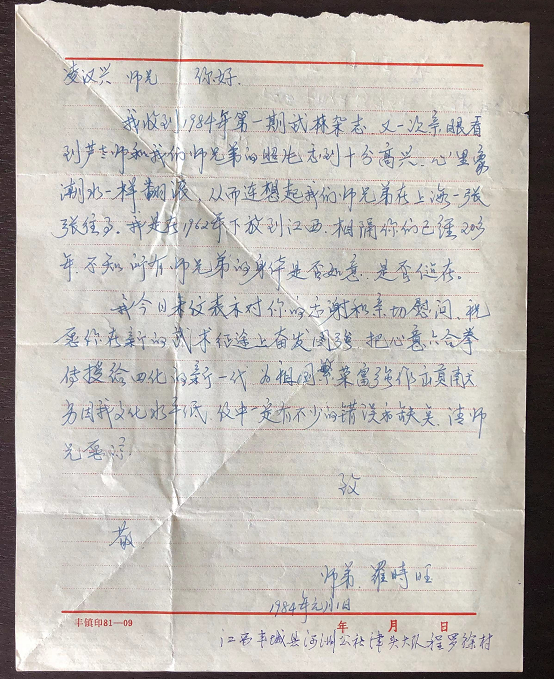 凌汉兴 师兄 你好.
我收到1984年第一期武林杂志 又一次亲眼看
到芦老师和我们师兄弟的照片感到十分高兴. 心里象
潮水一样翻滚. 从而连想起我们师兄弟在上海一张
张往事. 我是在1962年下放到江西. 相隔你们已经20多
年. 不知所有师兄弟的身体是否如意. 是否健在.
我今日来信表示对你的感谢和亲切慰问. 祝
愿你在新的武术征途上奋发图强. 把心意六合拳
传授给四化的新一代 为祖国繁荣富强作出贡献
另因我文化水平低. 信中一定有不少的错误和缺点. 请师
兄原谅.
致
敬
师弟. 罗時旺
1984年元月1日
丰镇印81—09 年 月 日
江西丰城县河洲公社津头大队程罗徐村